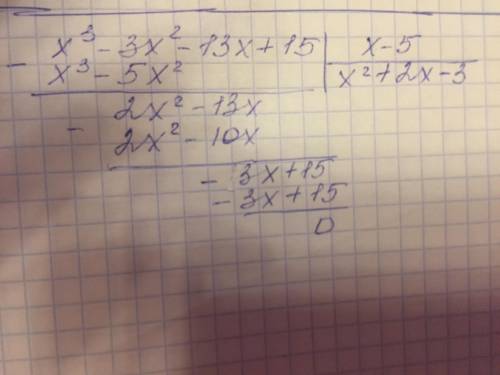 x³ - 3x² - 13x + 15 | x - 5
- x³ - 5x² | x² + 2x - 3
2x² - 13x
- 2x² - 10x
- 3x + 15
- 3x + 15
0